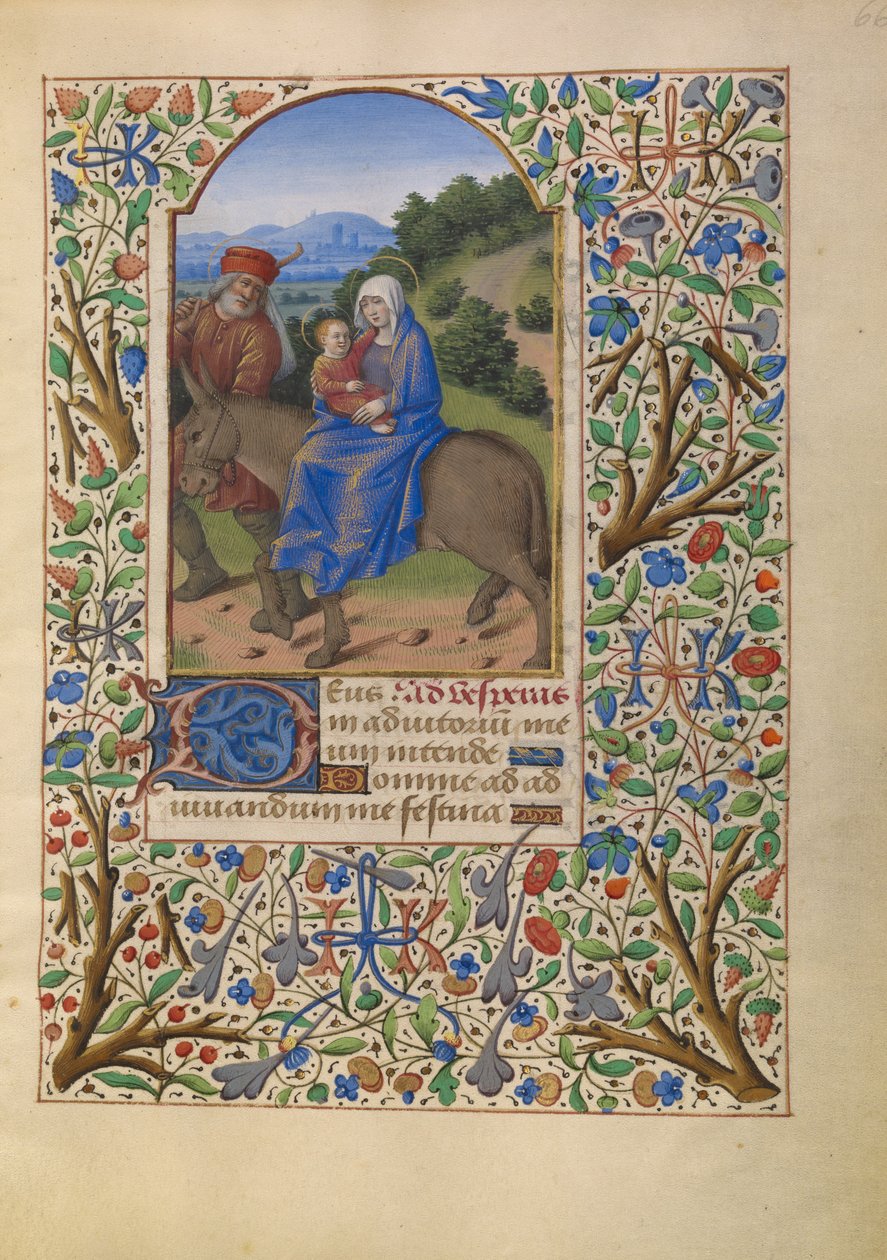 66
IK
IK
Deus Ad Vesperas
in adiutoriū me
um intende
Domine ad ad
iuuandum me festina
IK
IK
IK